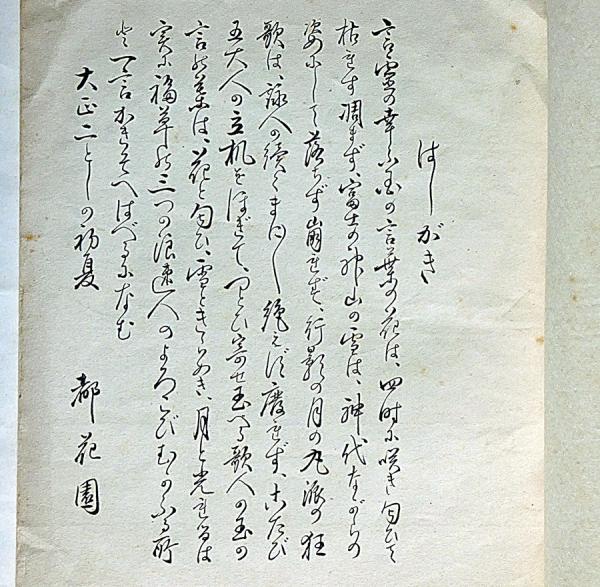 はしがき
言霊の幸ふ国の言葉の花は、四時に咲き匂ひて
枯れず凋まず、富士の神山の雪は、神代ながらの
姿にして落ちず崩れず、行影の月の九派の狂
歌は、詠人の続くまに〳〵絶えず廃れず、こたび
五大人の立机をほぎて、つとひ寄せ玉へる歌人の玉の
言の葉は、花と匂ひ、雪ときらめき、月と光れるは
実に福草の三つの浪速人のよろこびむかふる所
と一言かきそへはべるになむ
大正二としの初夏
都花園